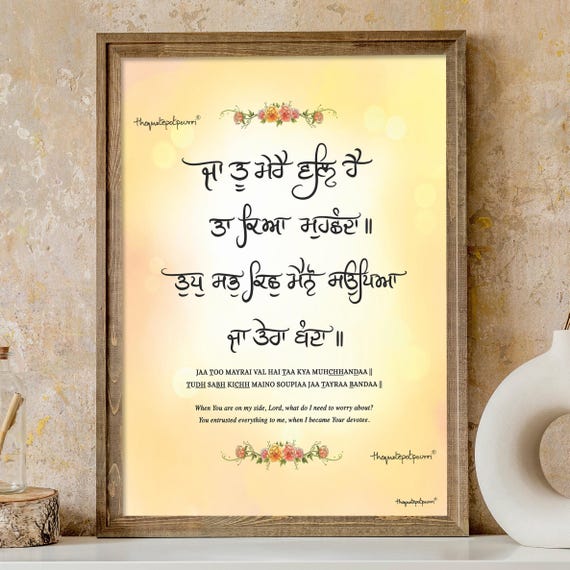 thequotepotpourri®
ਜਾ ਤੂ ਮੇਰੈ ਵਲਿ ਹੈ
ਤਾ ਕਿਆ ਮੁਹਛੰਦਾ ॥
ਤੁਧੁ ਸਭੁ ਕਿਛੁ ਮੈਨੋ ਸਉਪਿਆ
ਜਾ ਤੇਰਾ ਬੰਦਾ ॥
JAA TOO MAYRAI VAL HAI TAA KYA MUHCHHANDAA ||
TUDH SABH KICHH MAINO SOUPIAA JAA TAYRAA BANDAA ||
When You are on my side, Lord, what do I need to worry about?
You entrusted everything to me, when I became Your devotee.
thequotepotpourri®
thequotepotpourri®